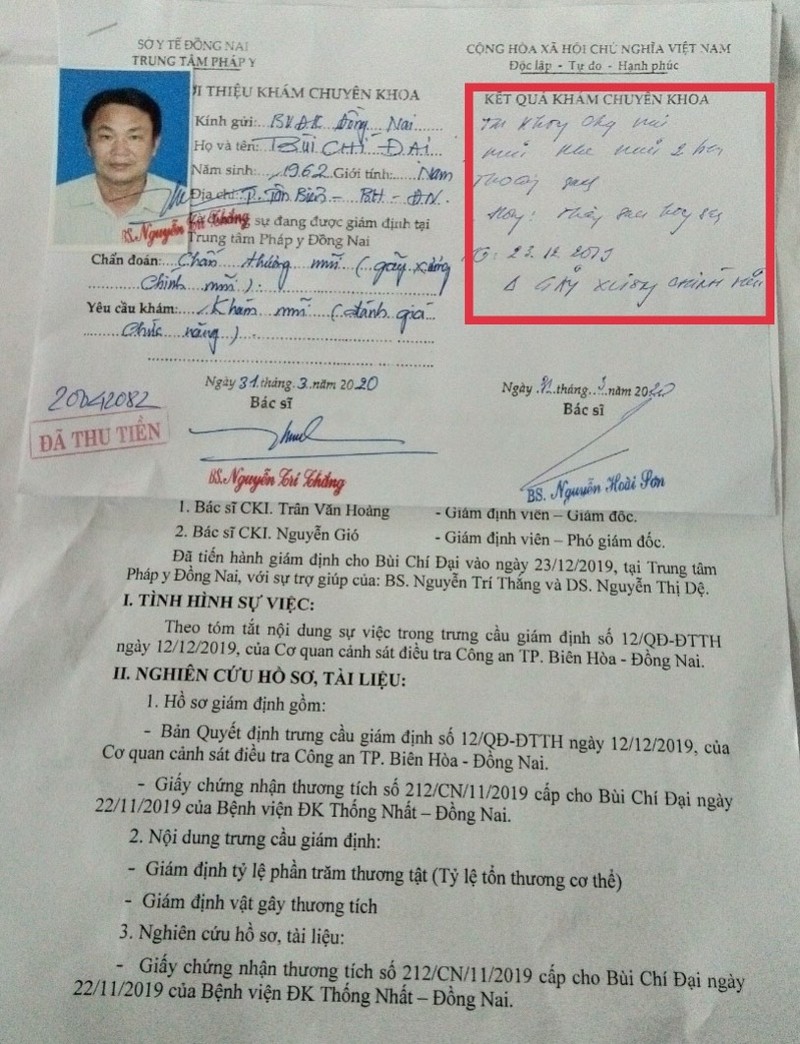 SỞ Y TẾ ĐỒNG NAI
TRUNG TÂM PHÁP Y
ỚI THIỆU KHÁM CHUYÊN KHOA
Kính gửi: BVĐK Đồng Nai
Họ và tên: BÙI CHÍ ĐẠI
Năm sinh: 1962 Giới tính: Nam
Địa chỉ: P. Tân Biên - BH - ĐN.
sự đang được giám định tại
Trung tâm Pháp y Đồng Nai
Chẩn đoán: Chấn thương mũi (gãy xương
chính mũi).
Yêu cầu khám: Khám mũi (đánh giá
chức năng).
Ngày 31 tháng 3 năm 2020
Bác sĩ
20042082
ĐÃ THU TIỀN
BS. Nguyễn Trí Thắng
BS. Nguyễn Trí Thắng
CỘNG HÒA XÃ HỘI CHỦ NGHĨA VIỆT NAM
Độc lập - Tự do - Hạnh phúc
KẾT QUẢ KHÁM CHUYÊN KHOA
23.12.2019
GÃY XƯƠNG CHÍNH MŨI
Ngày tháng năm 2020
Bác sĩ
BS. Nguyễn Hoài Sơn
1. Bác sĩ CKI. Trân Văn Hoàng - Giám định viên – Giám đốc.
2. Bác sĩ CKI. Nguyễn Gió - Giám định viên – Phó giám đốc.
Đã tiến hành giám định cho Bùi Chí Đại vào ngày 23/12/2019, tại Trung tâm
Pháp y Đồng Nai, với sự trợ giúp của: BS. Nguyễn Trí Thắng và DS. Nguyễn Thị Dệ.
I. TÌNH HÌNH SỰ VIỆC:
Theo tóm tắt nội dung sự việc trong trưng cầu giám định số 12/QĐ-ĐTTH
ngày 12/12/2019, của Cơ quan cảnh sát điều tra Công an TP. Biên Hòa - Đồng Nai.
II. NGHIÊN CỨU HỒ SƠ, TÀI LIỆU:
1. Hồ sơ giám định gồm:
- Bản Quyết định trưng cầu giám định số 12/QĐ-ĐTTH ngày 12/12/2019, của
Cơ quan cảnh sát điều tra Công an TP. Biên Hòa - Đồng Nai.
- Giấy chứng nhận thương tích số 212/CN/11/2019 cấp cho Bùi Chí Đại ngày
22/11/2019 của Bệnh viện ĐK Thống Nhất – Đồng Nai.
2. Nội dung trưng cầu giám định:
- Giám định tỷ lệ phần trăm thương tật (Tỷ lệ tổn thương cơ thể)
- Giám định vật gây thương tích
3. Nghiên cứu hồ sơ, tài liệu:
- Giấy chứng nhận thương tích số 212/CN/11/2019 cấp cho Bùi Chí Đại ngày
22/11/2019 của Bệnh viện ĐK Thống Nhất – Đồng Nai.